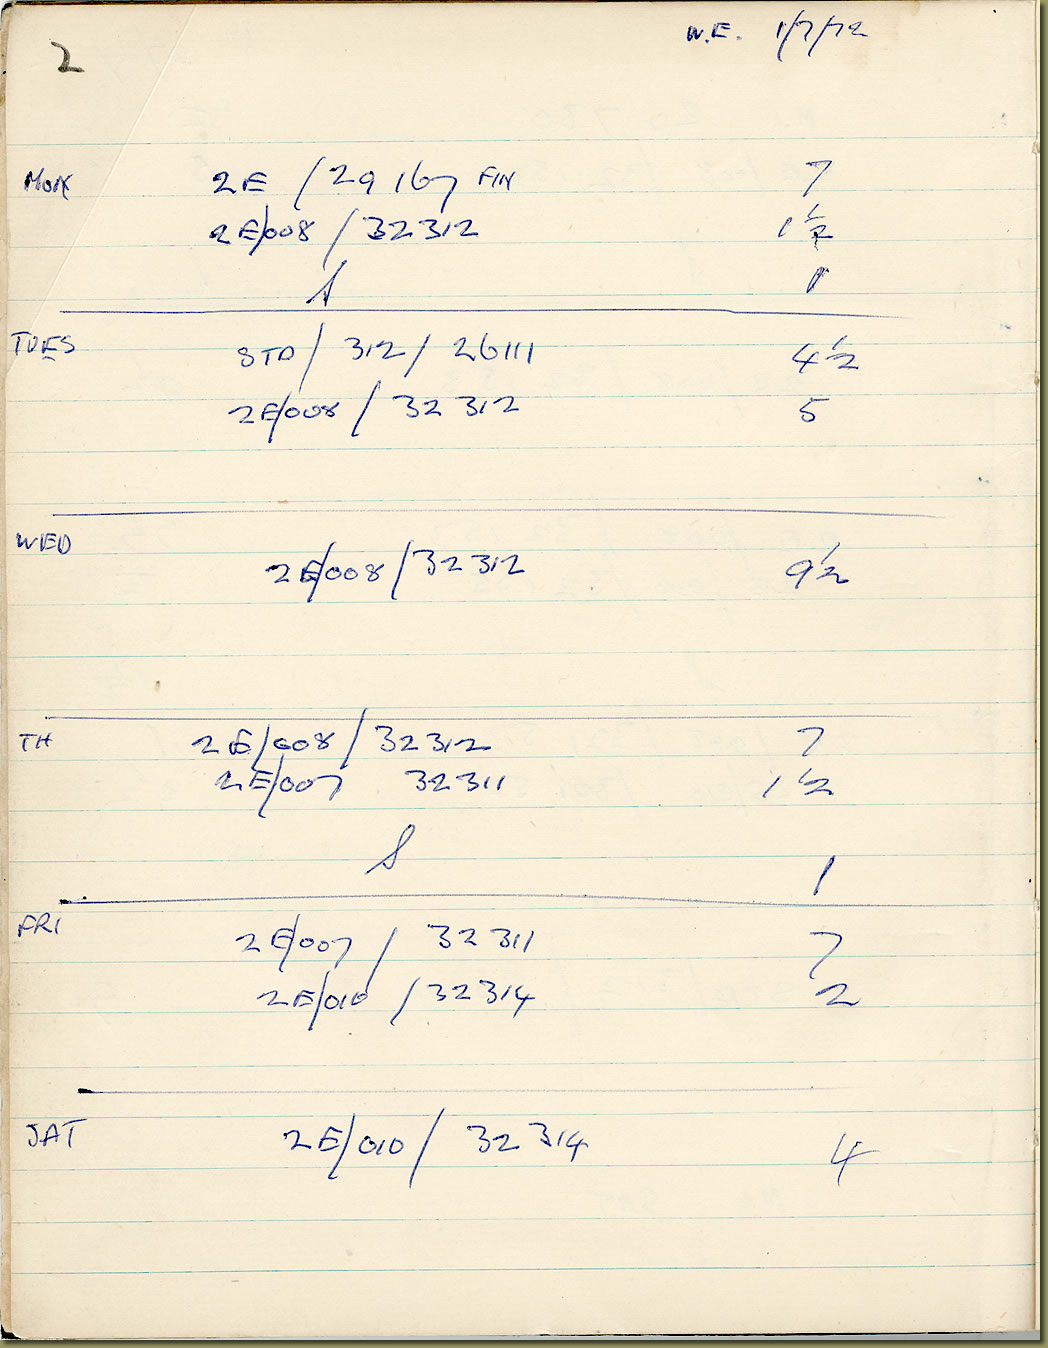 2
W.E. 1/7/72
MON 2E / 29167 FIN 7
2E/008 / 32312 1 1/2
S 1
TUES STD / 312 / 26111 4 1/2
2E/008 / 32312 5
WED 2E/008 / 32312 9 1/2
TH 2E/008 / 32312 7
2E/007 32311 1 1/2
S 1
FRI 2E/007 / 32311 7
2E/010 / 32314 2
SAT 2E/010 / 32314 4